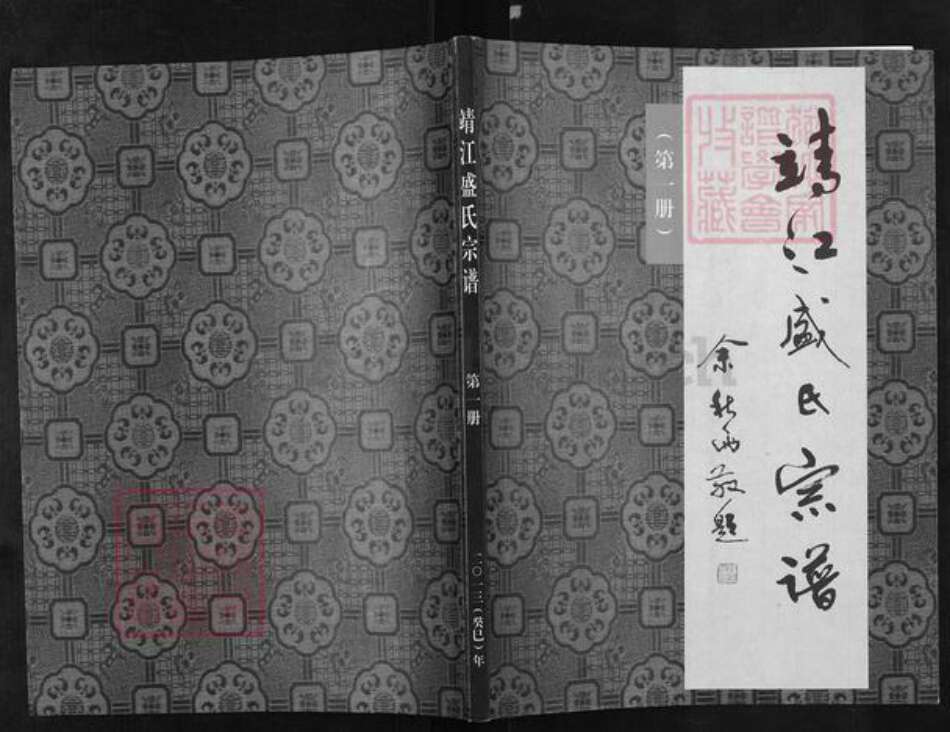 靖江盛氏宗谱
余秋雨敬题
（第一册）
靖江盛氏宗谱
第一册
二〇一三（癸巳）年
谱学会
收藏